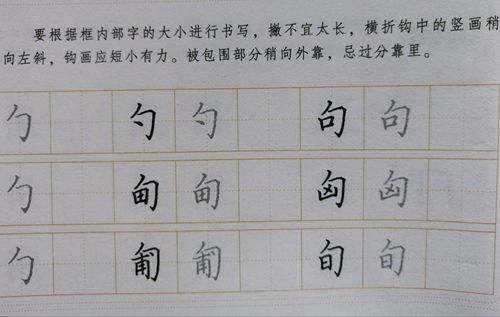 要根据框内部字的大小进行书写，撇不宜太长，横折钩中的竖画稍
向左斜，钩画应短小有力。被包围部分稍向外靠，忌过分靠里。
勹 勺 勺 句 句
勹 甸 甸 匈 匈
勹 匍 匍 旬 旬